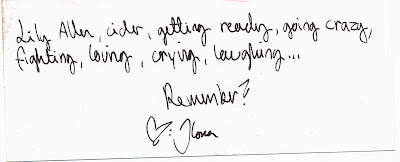 Lily Allen, cider, getting ready, going crazy,
fighting, loving, crying, laughing...
Remember?
Ilona